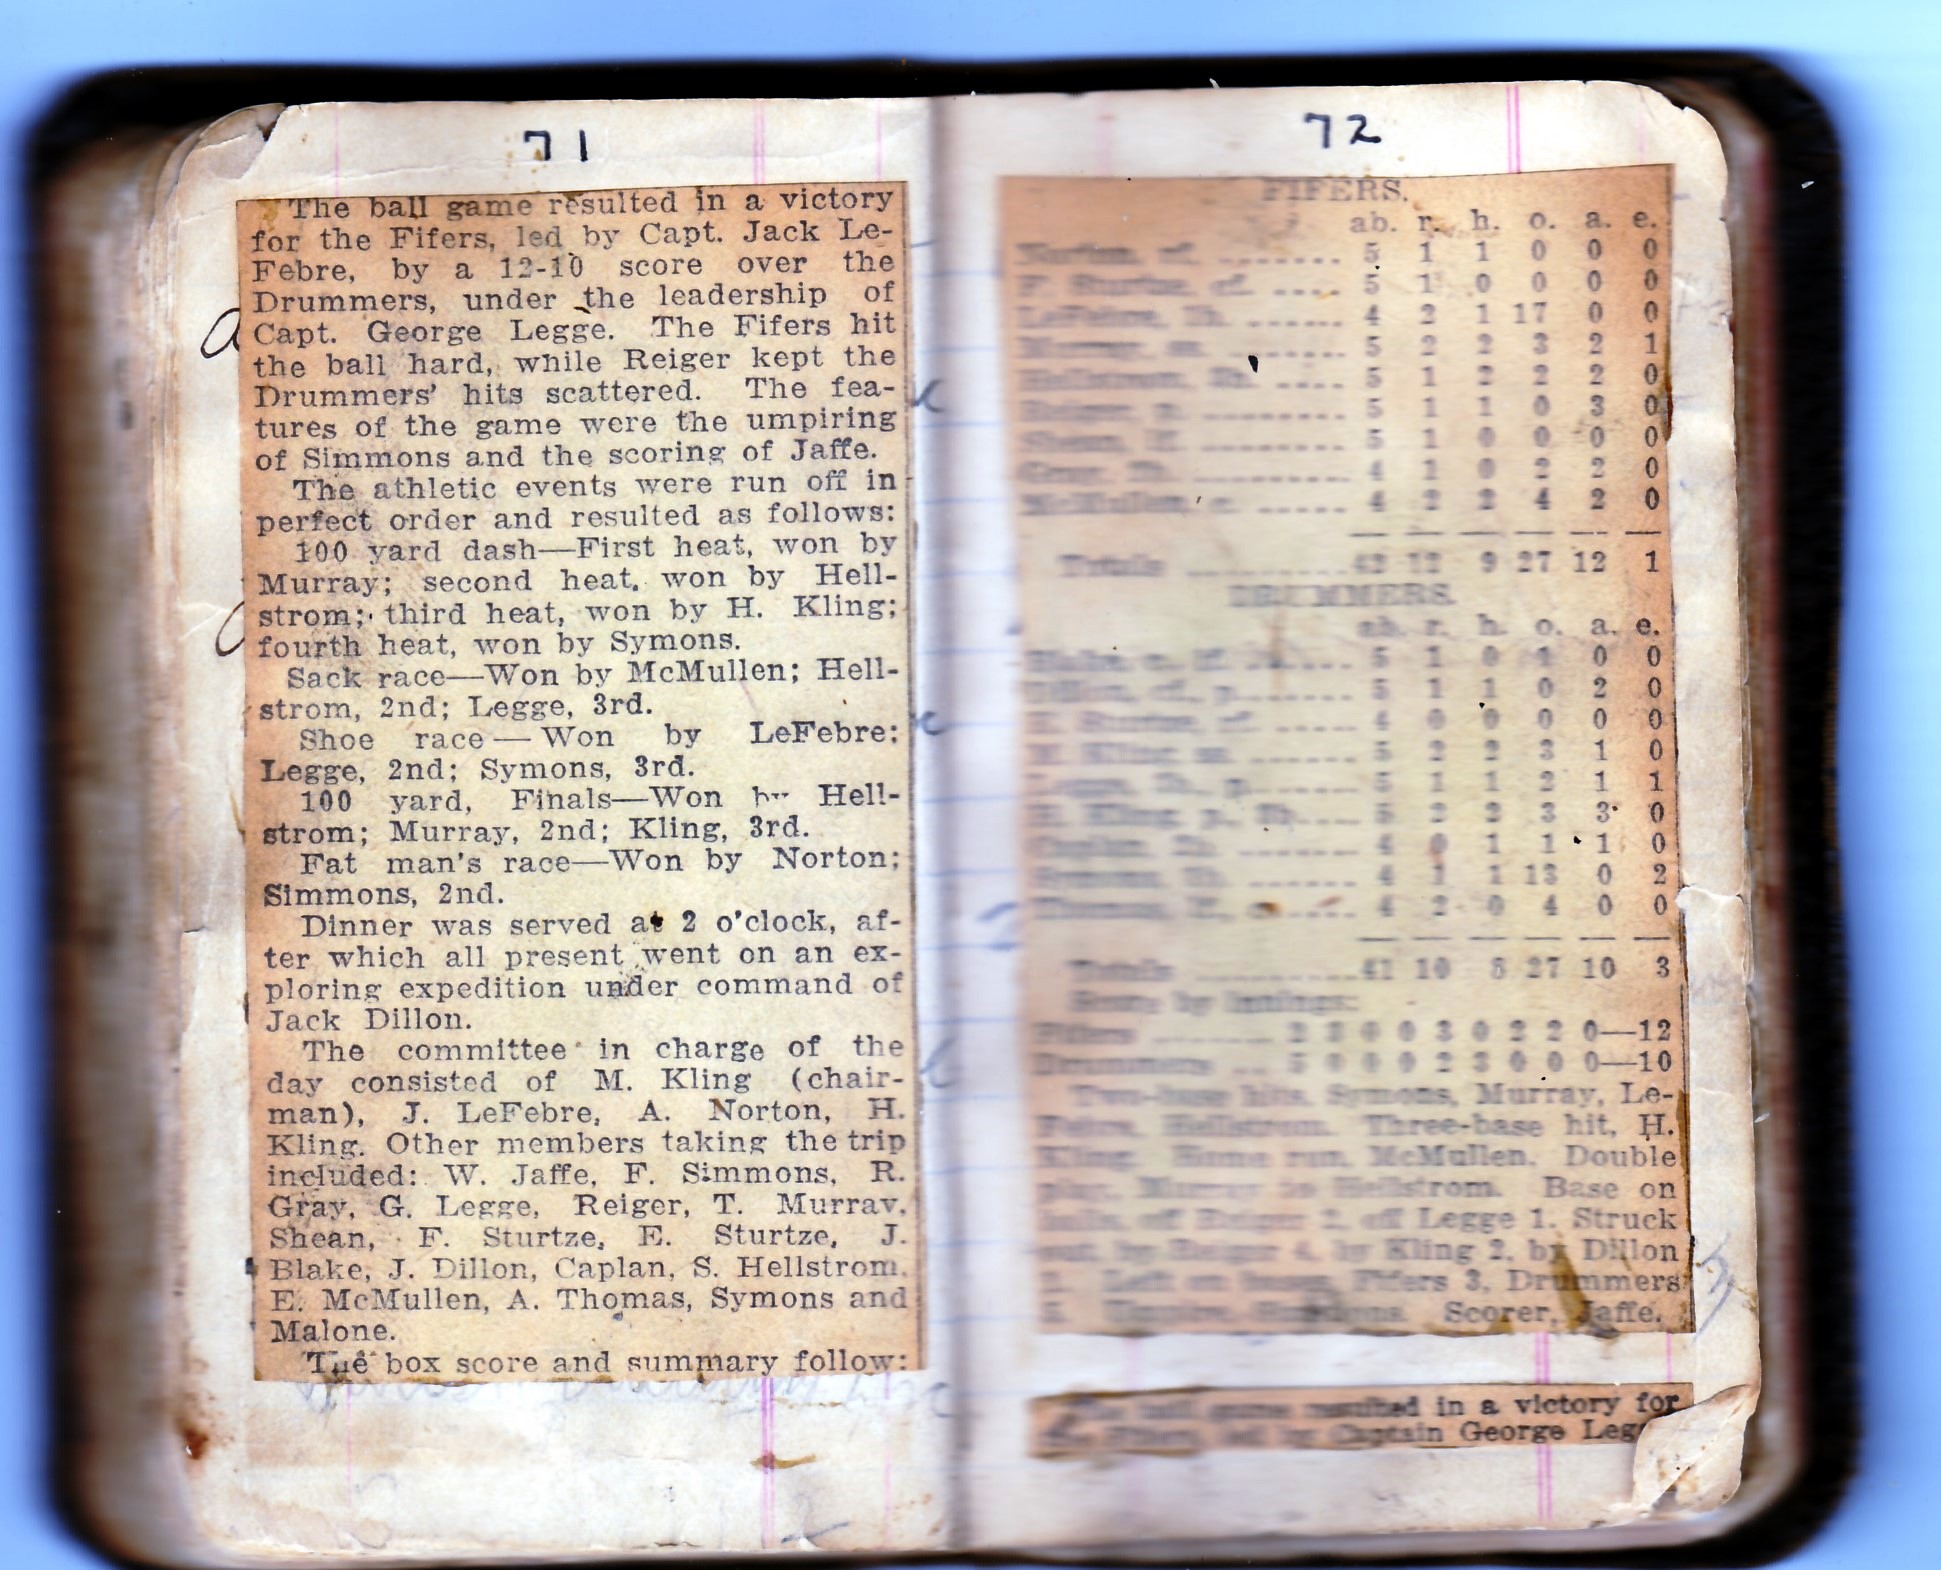 71
The ball game resulted in a victory
for the Fifers, led by Capt. Jack Le-
Febre, by a 12-10 score over the
Drummers, under the leadership of
Capt. George Legge. The Fifers hit
the ball hard, while Reiger kept the
Drummers' hits scattered. The fea-
tures of the game were the umpiring
of Simmons and the scoring of Jaffe.
The athletic events were run off in
perfect order and resulted as follows:
100 yard dash—First heat, won by
Murray; second heat, won by Hell-
strom; third heat, won by H. Kling;
fourth heat, won by Symons.
Sack race—Won by McMullen; Hell-
strom, 2nd; Legge, 3rd.
Shoe race—Won by LeFebre;
Legge, 2nd; Symons, 3rd.
100 yard, Finals—Won by Hell-
strom; Murray, 2nd; Kling, 3rd.
Fat man's race—Won by Norton;
Simmons, 2nd.
Dinner was served at 2 o'clock, af-
ter which all present went on an ex-
ploring expedition under command of
Jack Dillon.
The committee in charge of the
day consisted of M. Kling (chair-
man), J. LeFebre, A. Norton, H.
Kling. Other members taking the trip
included: W. Jaffe, F. Simmons, R.
Gray, G. Legge, Reiger, T. Murray,
Shean, F. Sturtze, E. Sturtze, J.
Blake, J. Dillon, Caplan, S. Hellstrom,
E. McMullen, A. Thomas, Symons and
Malone.
The box score and summary follow:
72
FIFERS.
ab. r. h. o. a. e.
Norton, cf. ........ 5 1 1 0 0 0
F. Sturtze, cf. .... 5 1 0 0 0 0
LeFebre, 1b. ....... 4 2 1 17 0 0
Murray, ss. ....... 5 2 2 3 2 1
Hellstrom, 3b. .... 5 1 2 2 2 0
Reiger, p. ......... 5 1 1 0 3 0
Shean, ......... 5 1 0 0 0 0
Gray, 2b. ......... 4 1 0 2 2 0
McMullen, c. ...... 4 2 2 4 2 0
Totals ............ 42 12 9 27 12 1
DRUMMERS.
ab. r. h. o. a. e.
Blake, ....... 5 1 0 1 0 0
Dillon, cf., p. ....... 5 1 1 0 2 0
E. Sturtze, cf. ...... 4 0 0 0 0 0
M. Kling, ss. ....... 5 2 2 3 1 0
p. ....... 5 1 1 2 1 1
H. Kling, p., 3b. .... 5 2 2 3 3 0
Caplan, ........ 4 0 1 1 1 0
Symons, 1b. ....... 4 1 1 13 0 2
Thomas, ...... 4 2 0 4 0 0
Totals .......... 41 10 8 27 10 3
Score by innings:
Fifers ........ 2 3 0 0 3 0 2 2 0—12
Drummers ... 5 0 0 0 2 3 0 0 0—10
Two-base hits, Symons, Murray, Le-
Febre, Hellstrom. Three-base hit, H.
Kling. Home run, McMullen. Double
play, Murray to Hellstrom. Base on
balls, off Reiger 2, off Legge 1. Struck
out, by Reiger 4, by Kling 2, by Dillon
1. Left on bases, Fifers 3, Drummers
Umpire, Simmons. Scorer, Jaffe.
The ball game resulted in a victory for
the Fifers, led by Captain George Leg